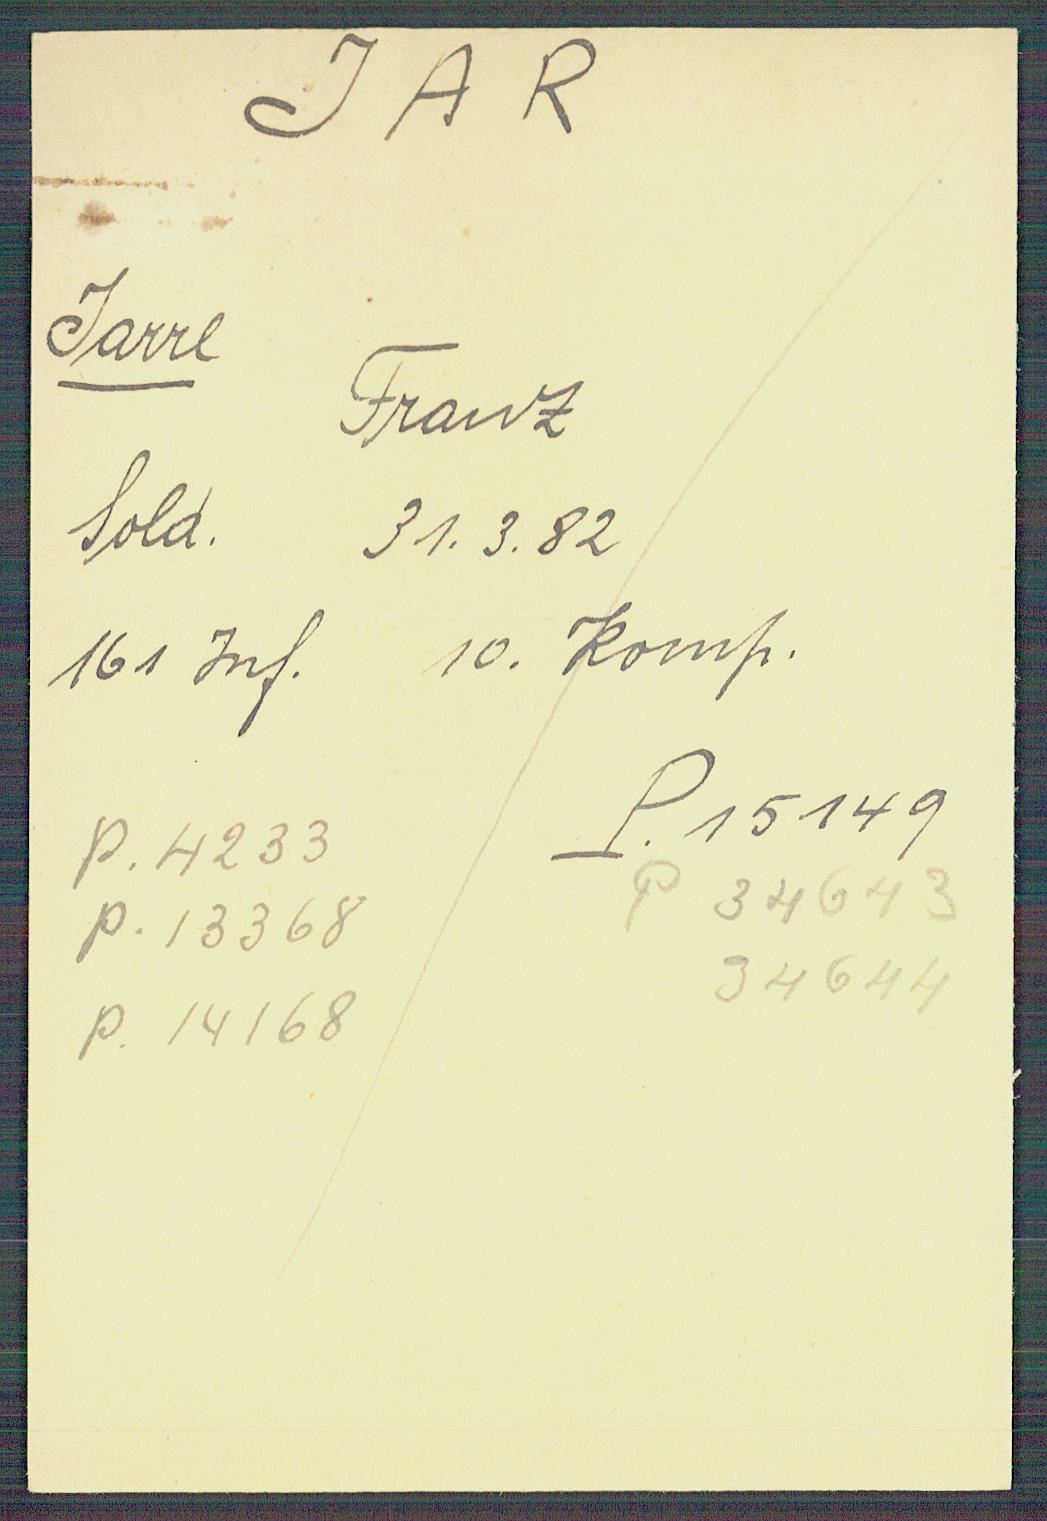 JAR
Jarre
Franz
Sold. 31.3.82
161 Inf. 10. Komp.
P. 15149
P. 4233
P 34643
P. 13368
34644
P. 14168